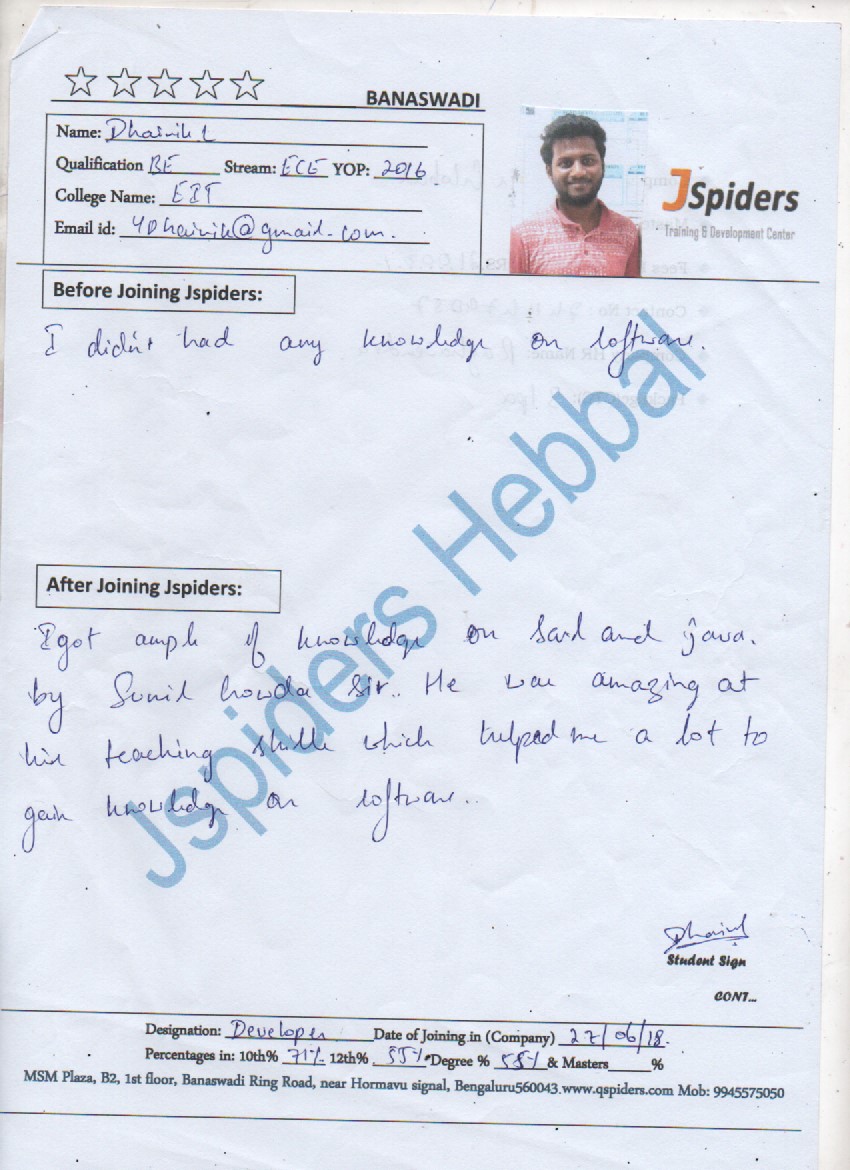 BANASWADI
Name: Dhainik L
Qualification BE Stream: ECE YOP: 2016
College Name: EIT
Email id: 4Dhainik@gmail.com.
JSpiders
Training & Development Center
Before Joining Jspiders:
I didn't had any knowledge on software.
After Joining Jspiders:
I got ample of knowledge on and java.
by Sunil Gowda Sir.. He was amazing at
his teaching skills which helped me a lot to
gain knowledge on software..
Jspiders Hebbal
Student Sign
CONT...
Designation: Developer Date of Joining in (Company) 27/06/18.
Percentages in: 10th% 71% 12th% 55% Degree % 58% & Masters %
MSM Plaza, B2, 1st floor, Banaswadi Ring Road, near Hormavu signal, Bengaluru560043.www.qspiders.com Mob: 9945575050